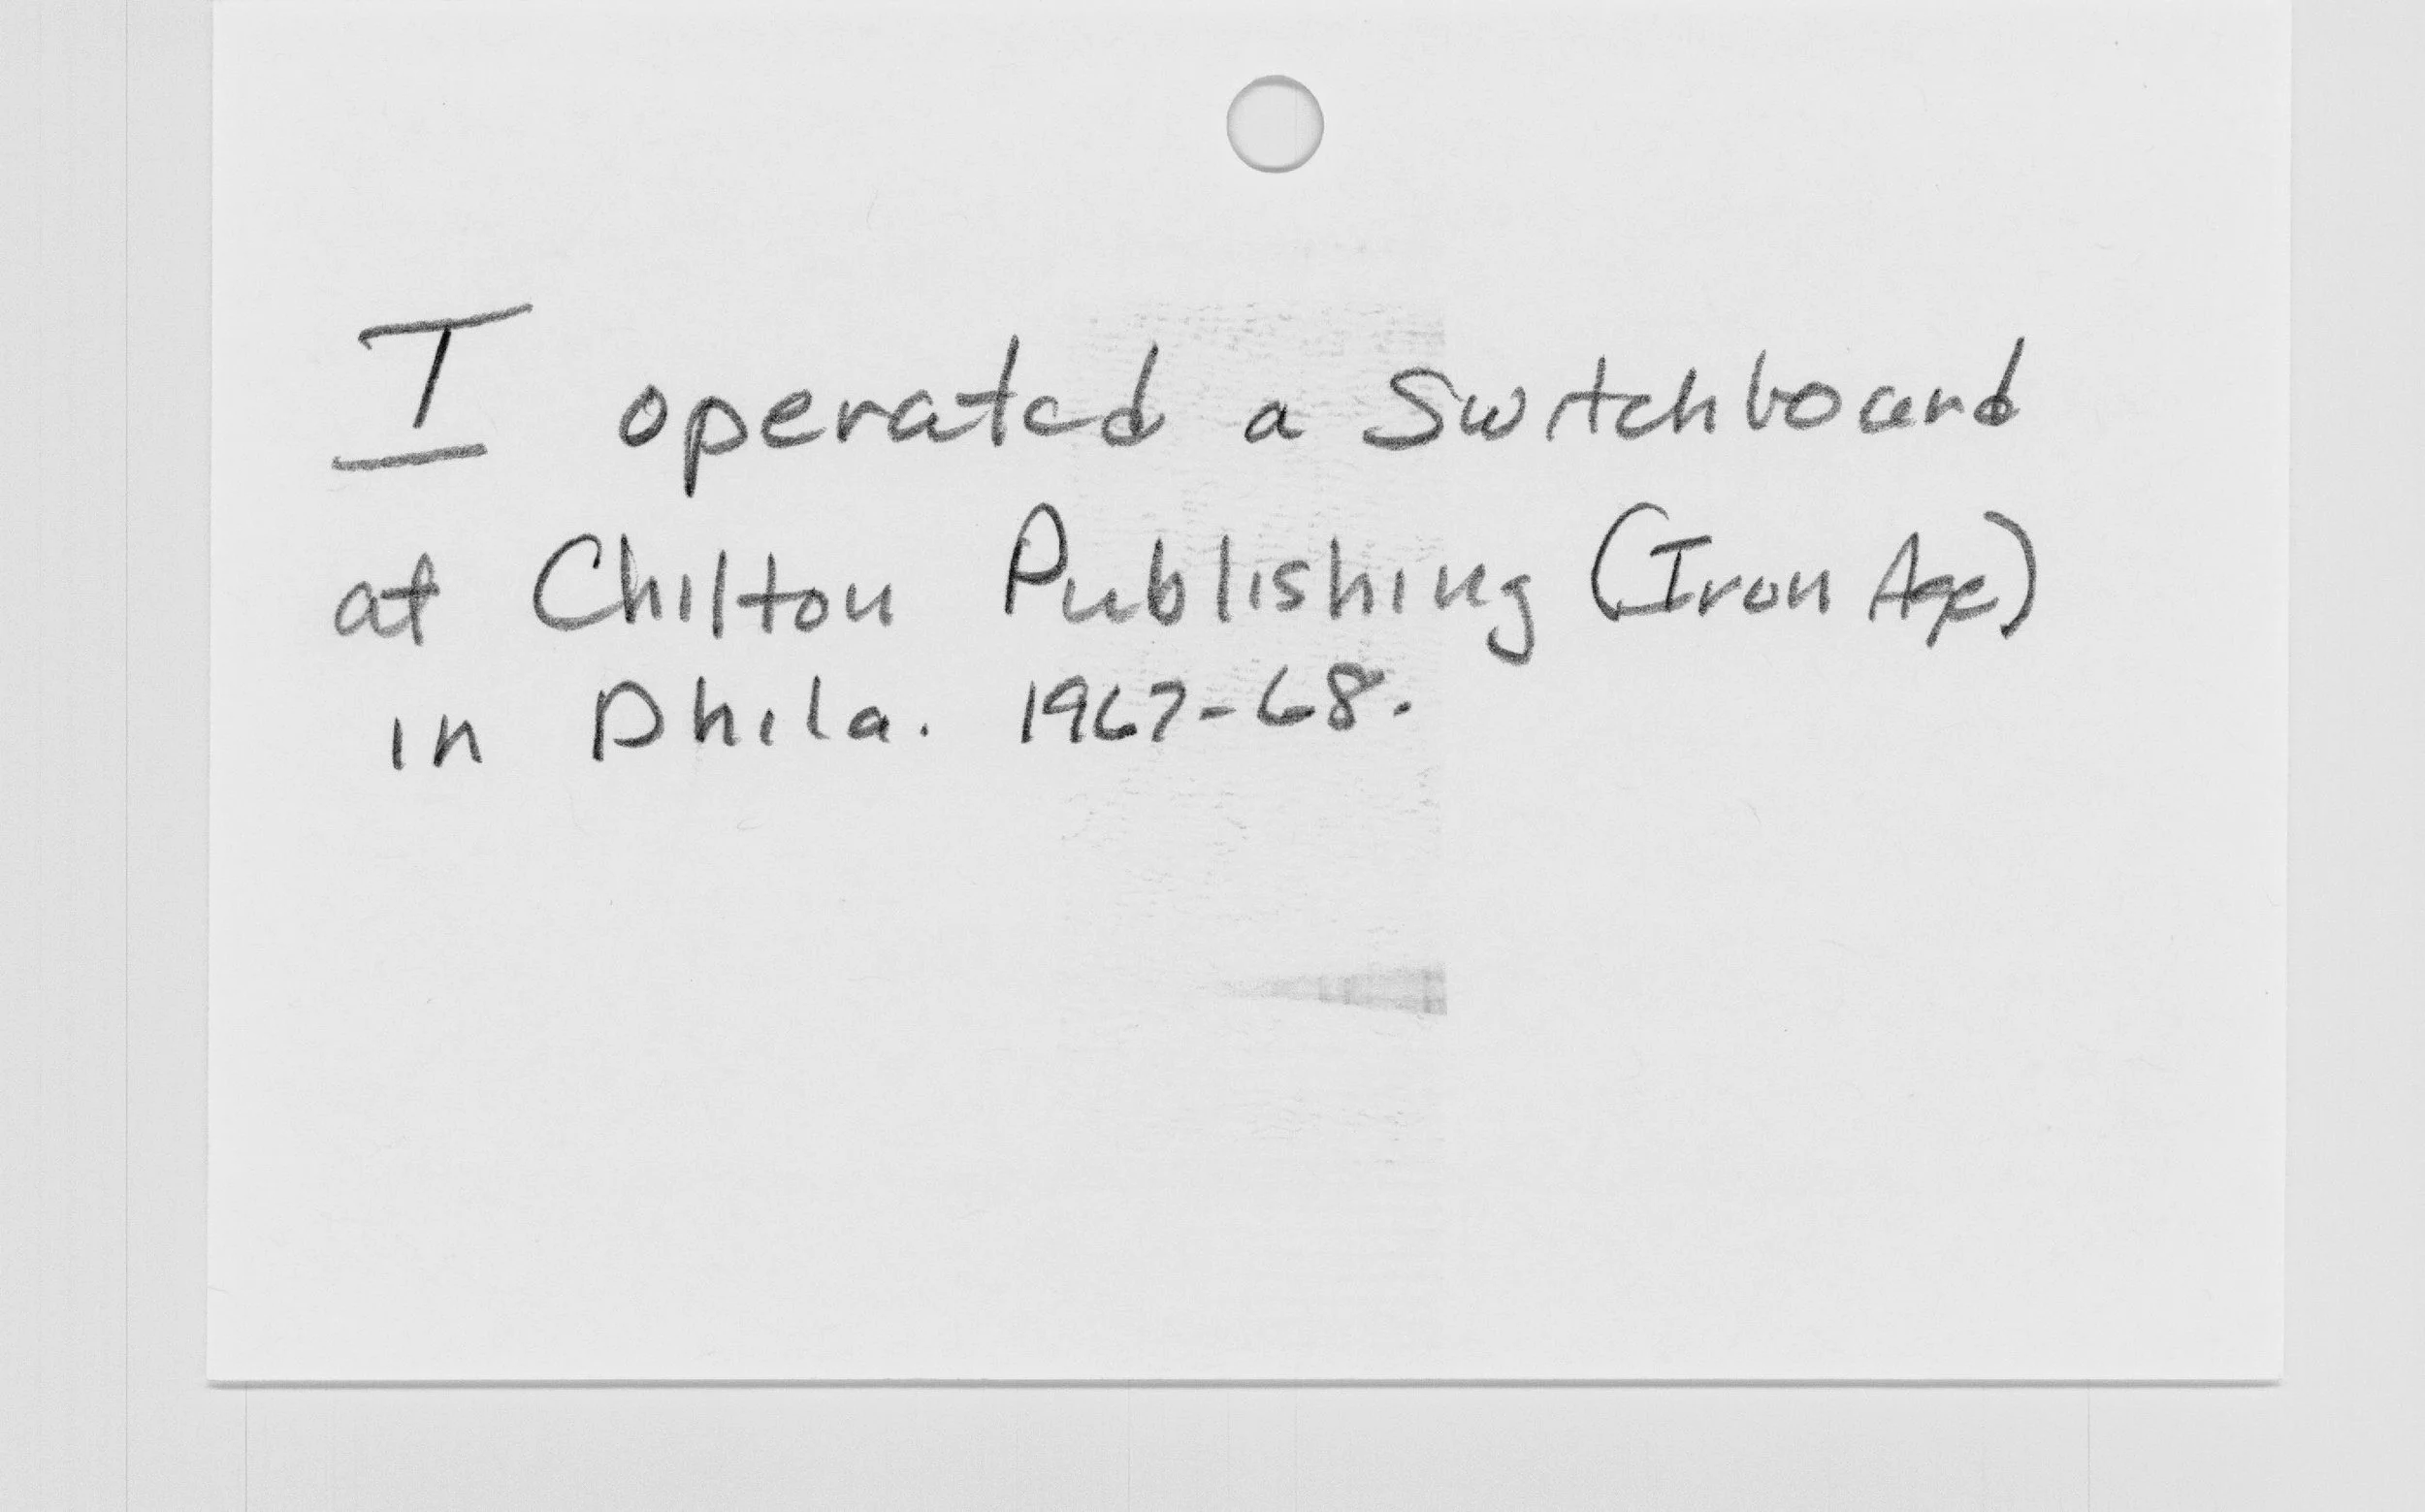 I operated a Switchboard
at Chilton Publishing (Iron Age)
in Phila. 1967-68.